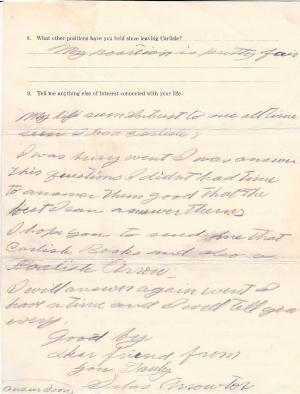 8. What other positions have you held since leaving Carlisle?
My position is pretty fair
9. Tell me anything else of interest connected with your life:
My life seem intrust to me all time
I has carlisle,
I was busy went I was answer
this questions I didnt had time
to answer them good that the
best I can answer them,
I hope you to send me that
Carlish Books and also a
Carlish Arrow.
I will answer again went I
had a time and I will tell you
every.
Good by
dear friend from
you
Silas Arrowtop
answer soon,